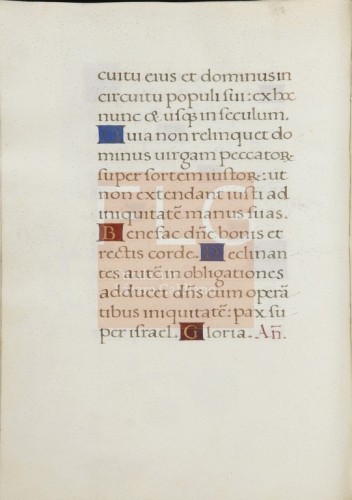 cuitu eius et dominus in
circuitu populi sui: ex hoc
nunc & usqȝ in seculum.
Quia non relinquet do
minus uirgam peccatoꝝ
super sortem iustoꝝ: ut
non extendant iusti ad
iniquitatē manus suas.
Benefac dñe bonis et
rectis corde. Declinan
tes autē in obligationes
adducet dñs cum operā
tibus iniquitatē: pax su
per israel. Gloria. Añ.
FLC